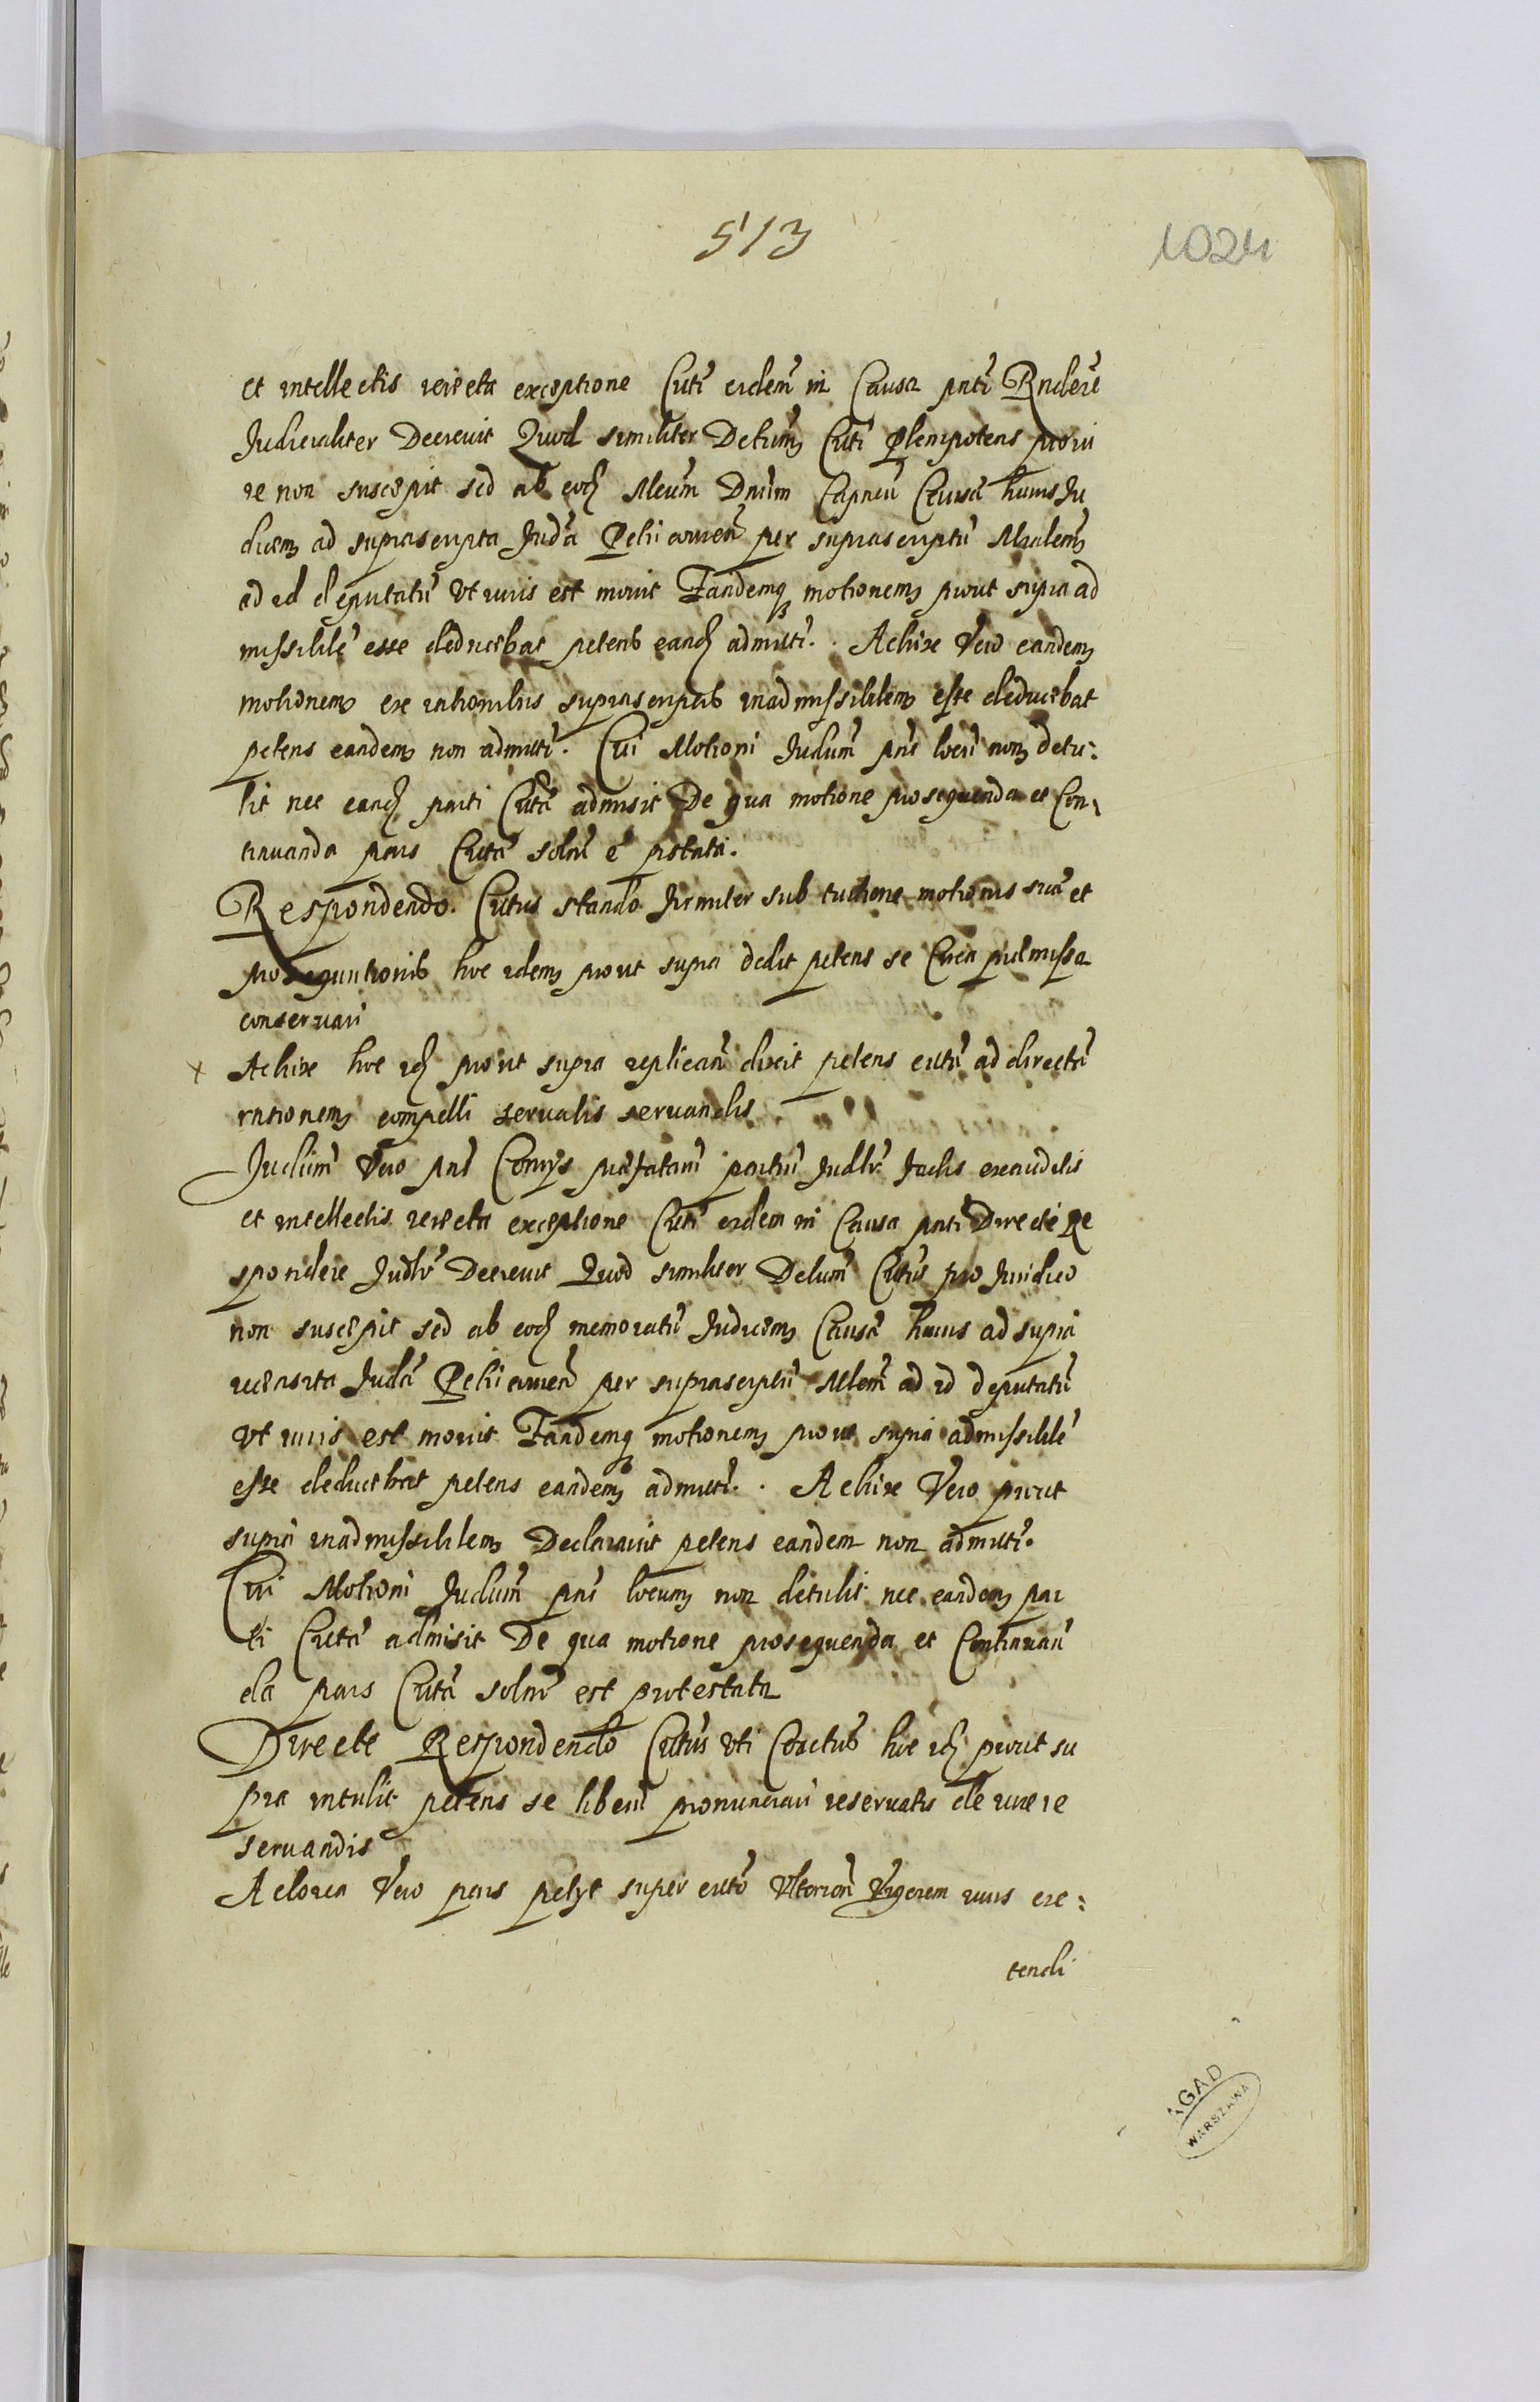 513
1024
et intellectis reiecta exceptione Citti eidem in Causa pnti Rndere
Judicialiter Decrevit Quod similiter Detum Citti Plenipotens pro iu
re non suscepit sed ab eod Dnum Capneu Causae huius Ju
dicem ad suprascripta Juda per suprascriptu
ad id deputatu Vt iuris est movit Eandemq motionem prout supra ad
missibile esse deducebat petens eand admitti. Actrix Vero eandem
motionem ex rationibus suprascriptis inadmissibilem esse deducebat
petens eandem non admitti. Cui Motioni Judium pns locu non detu:
lit nec eand parti Cittae admisit De qua motione prosequenda et Con,
tinuanda pars Citta solnr e ptstata.
Respondendo. Cittus stando firmiter sub tuitione motionis suae et
prosequutionis hoc idem prout supra dedit petens se Circa praemissa
conservari
x Actrix hoc id prout supra replicam dixit petens cittu ad directa
rnsionem compelli servatis servandis
Judium Vero pns Conyis praefatam partiu Judlr factis exauditis
et intellectis reiecta exceptione Citti eidem in Causa pnti Directe Re
spondere Judlr Decrevit Quod similiter Detum Cittus pro Juridico
non suscepit sed ab eod memoratu Judicem Causae huius ad supra
recensita Juda per suprascriptu ad id deputatu
Vt iuris est movit Eandemq motionem prout supra admissibile
esse deducebat petens eandem admitti. Actrix Vero prout
supra inadmissibilem Declaravit petens eandem non admitti.
Cui Motioni Judium pns locum non detulit nec eandem par
ti Cittae admisit De qua motione prosequenda et Continuan
da pars Citta solnr est protestata
Directe Respondendo Cittus Vti Coactus hoc id prout su
pra intulit petens se liberu pronunciari reservatis de iure re
servandis
Actorea Vero pars petyt super citto Vlteriore Vigorem iuris ex:
tendi
AGAD
WARSZAWA